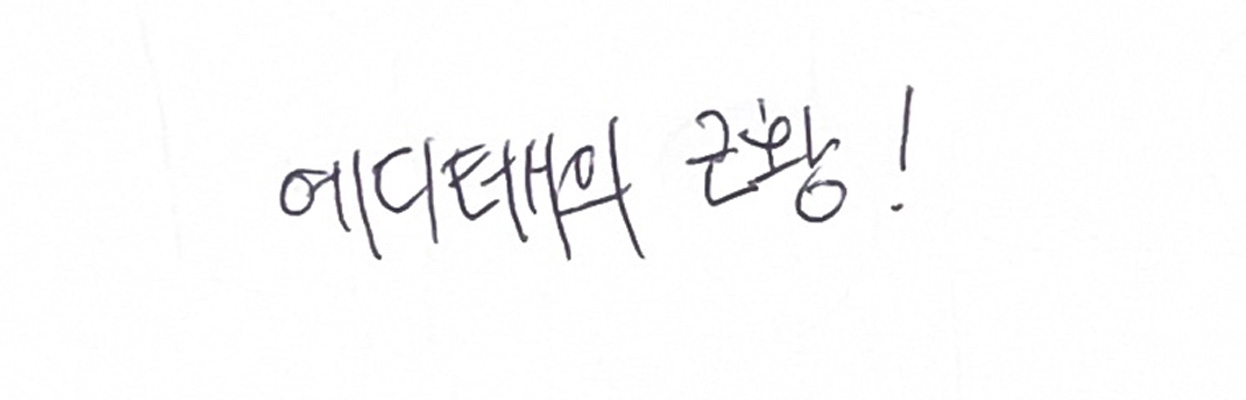 에디터H의 근황!